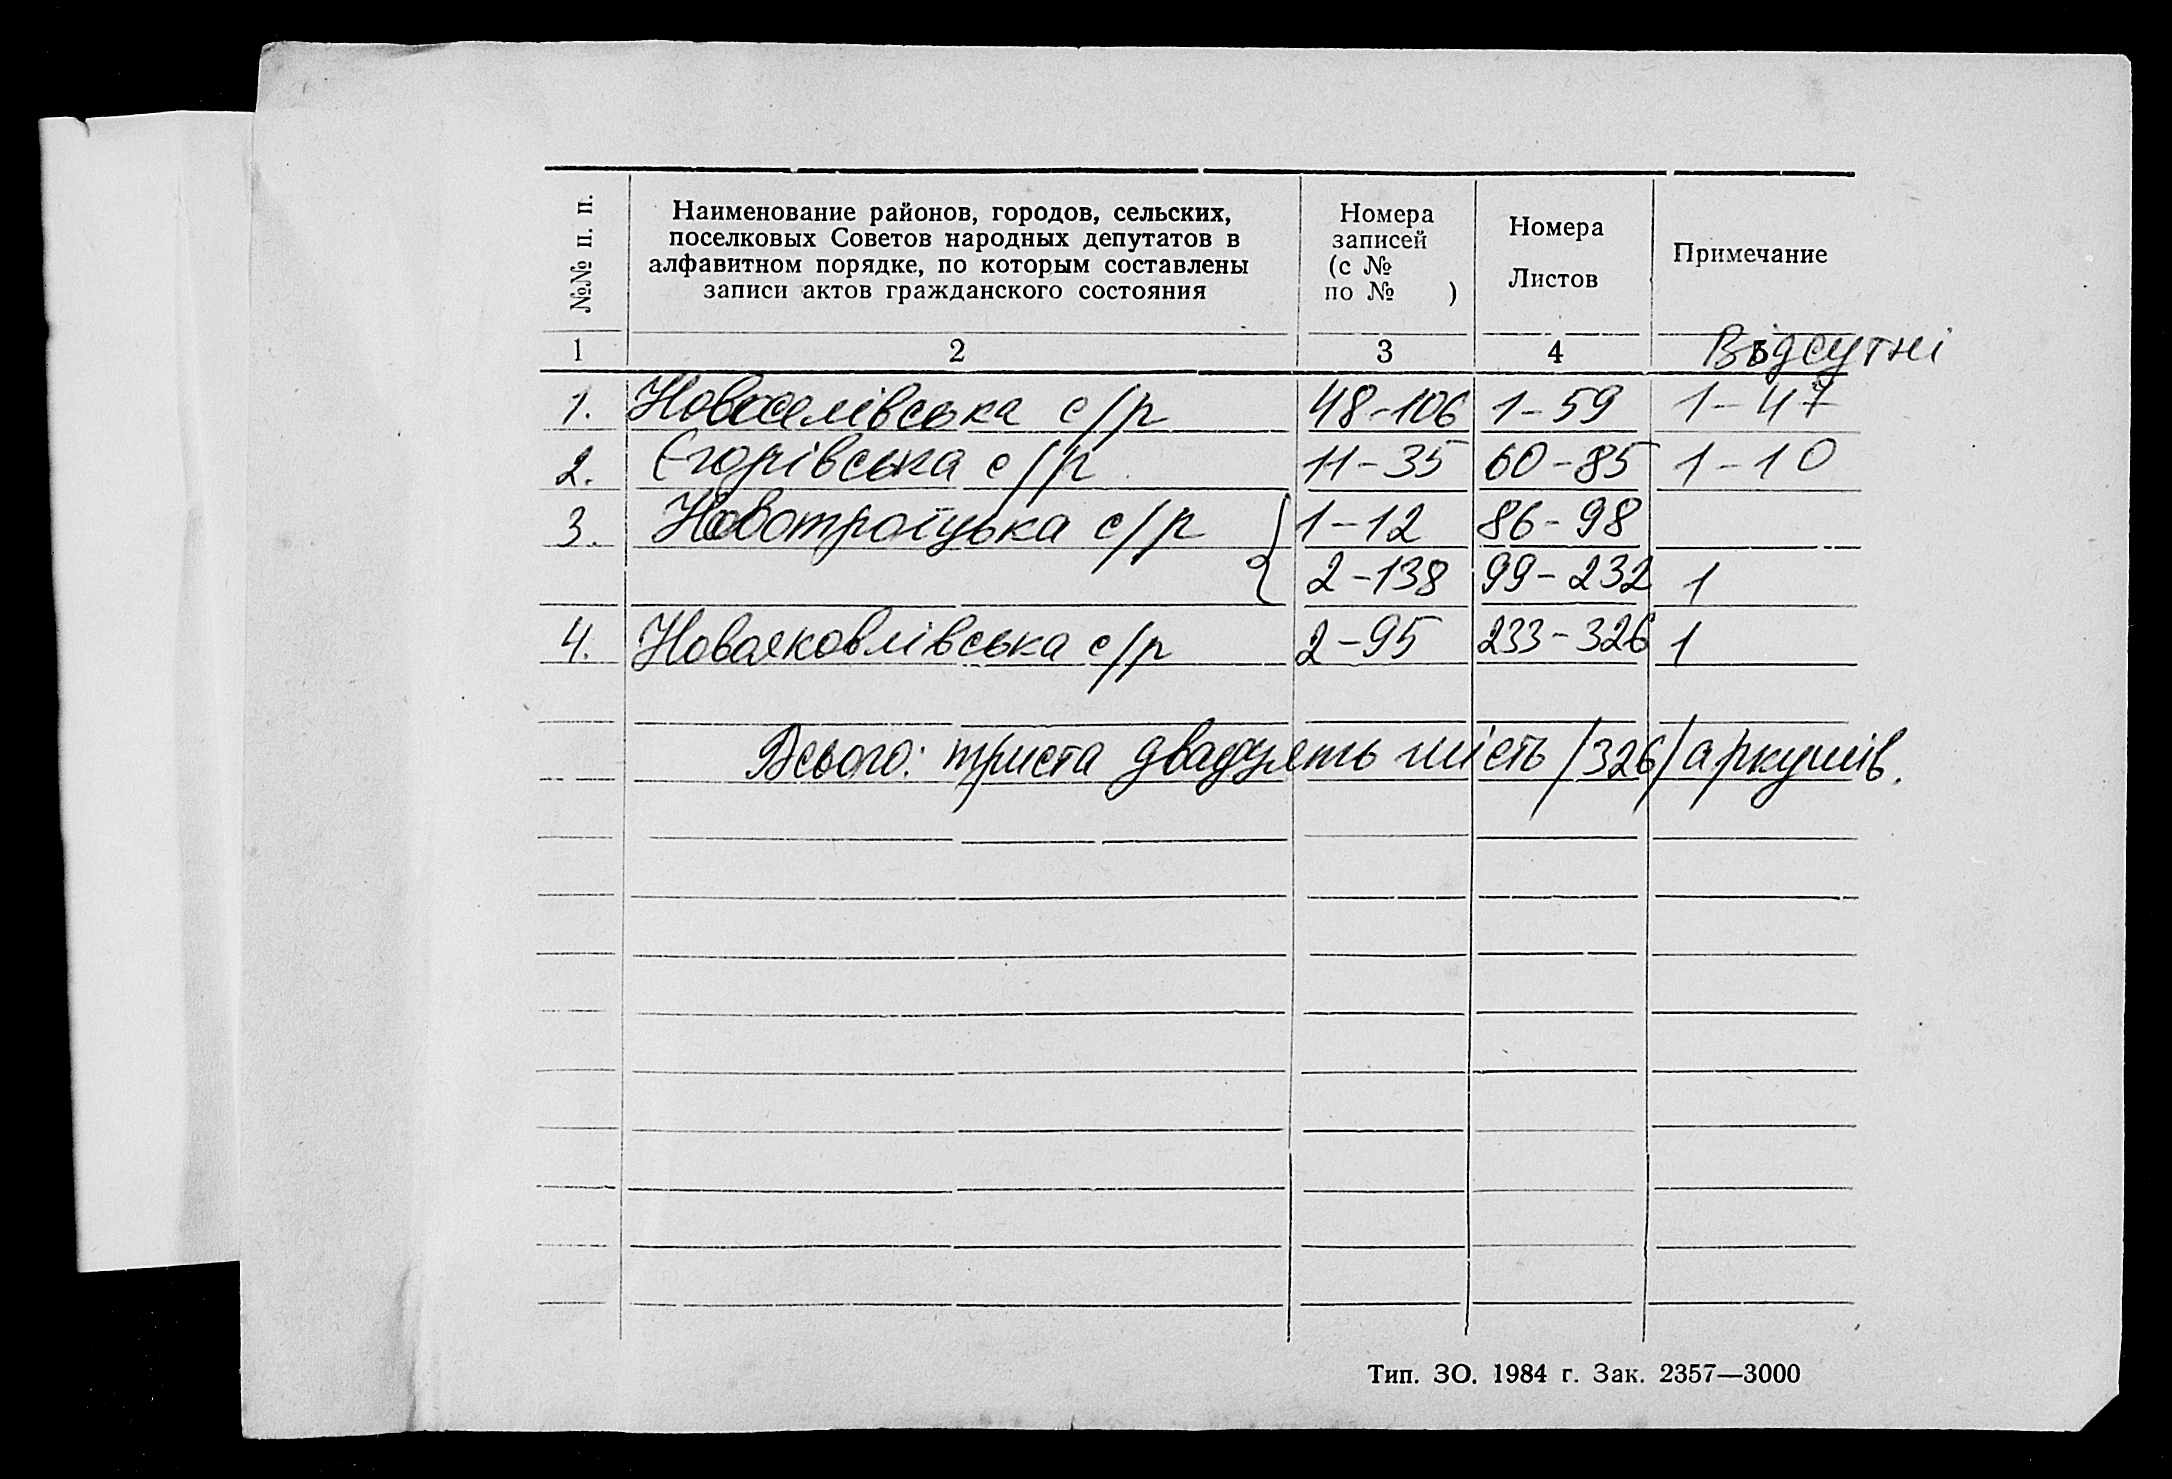 №№ п. п.
Наименование районов, городов, сельских,
поселковых Советов народных депутатов в
алфавитном порядке, по которым составлены
записи актов гражданского состояния
Номера
записей
(с №
по № )
Номера
Листов
Примечание
1 2 3 4 5 Відсутні
1. Новоселівська с/р 48-106 1-59 1-47
2. Єгорівська с/р 11-35 60-85 1-10
3. Новотроїцька с/р { 1-12 86-98
2-138 99-232 1
4. Новояковлівська с/р 2-95 233-326 1
Всього: триста двадцять шість /326/ аркушів.
Тип. ЗО. 1984 г. Зак. 2357—3000